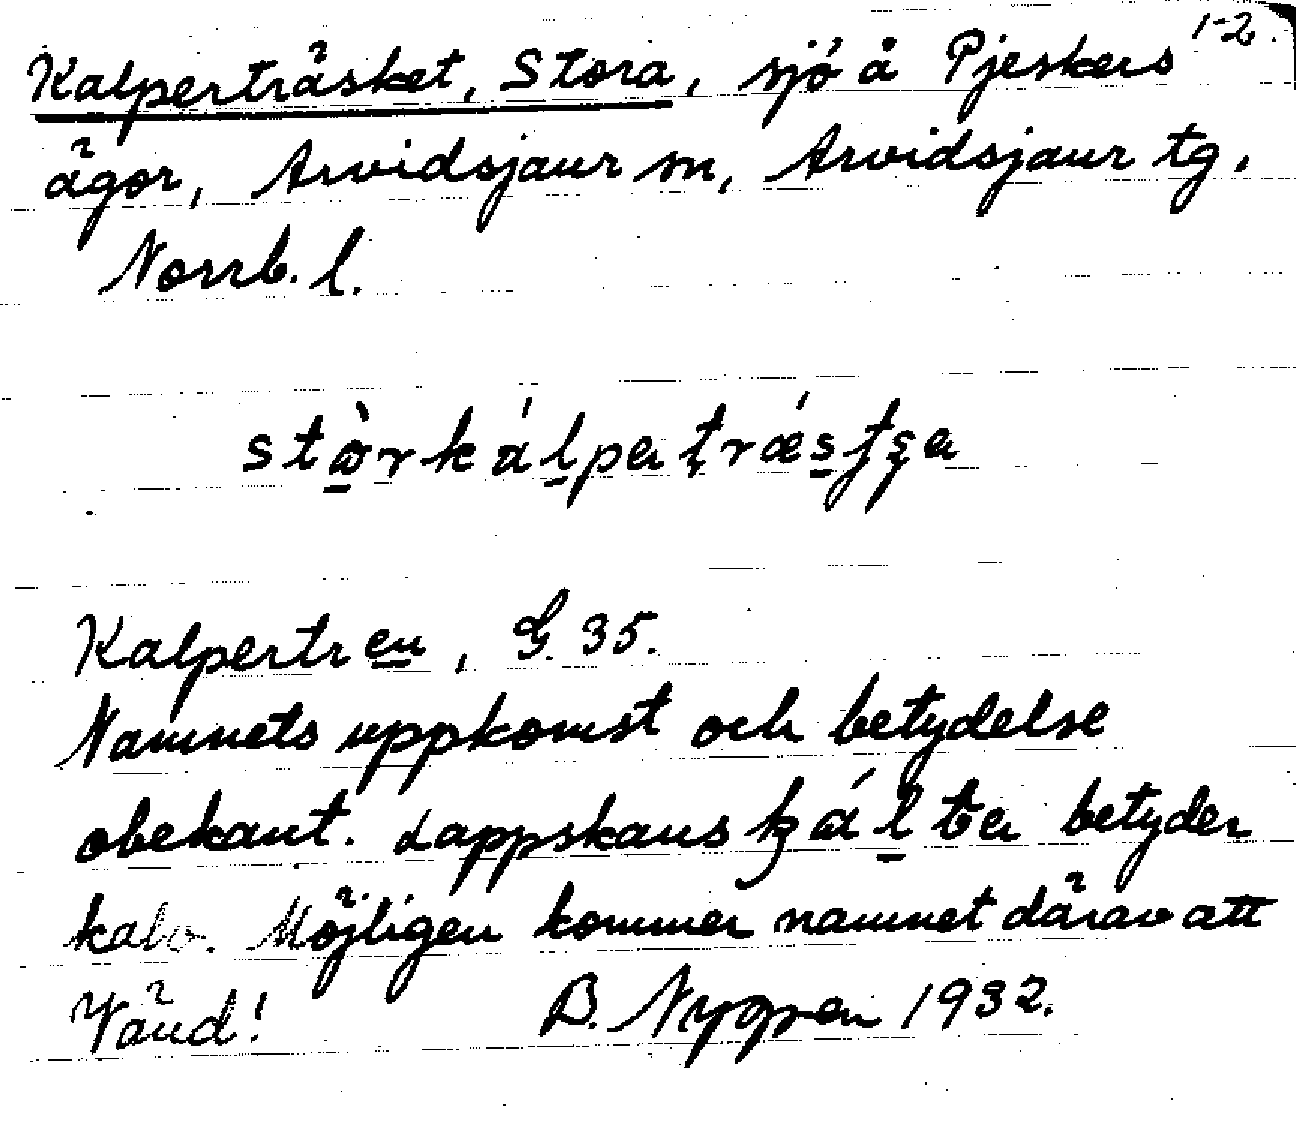 Kalperträsket, Stora, sjö å Pjeskers 1-2.
ägor, Arvidsjaur sn, Arvidsjaur tg,
Norrb. l.
Kalpertren, G. 35.
Namnets uppkomst och betydelse
obekant. Lappskans betyder
kalv. Möjligen kommer namnet därav att
Vänd! B. Nygren 1932.